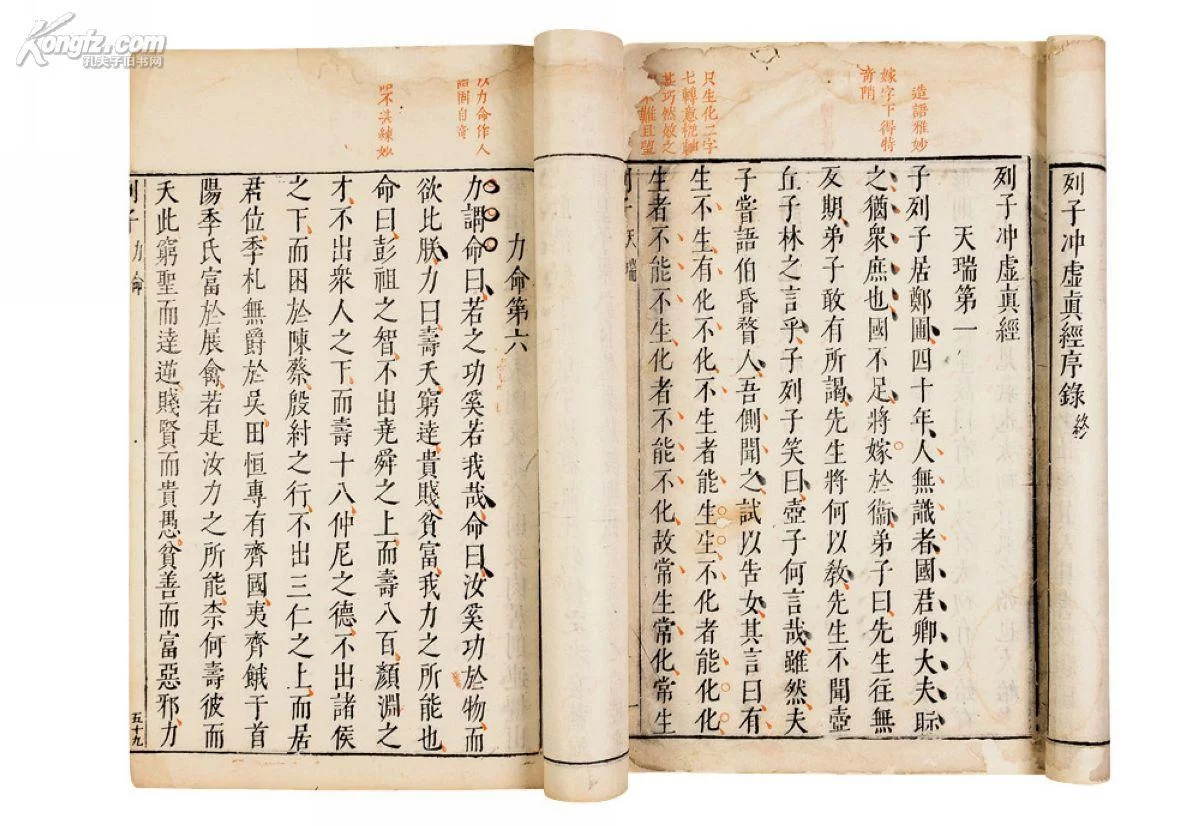 Kongfz.com
孔夫子旧书网
列子冲虛眞經序錄終
造語雅妙
嫁字下得特
奇陗
只生化二字
七轉意
甚巧然效之
不難且
列子冲虛眞經
天瑞第一
子列子居鄭圃四十年人無識者國君卿大夫眎
之猶衆庶也國不足將嫁於衞弟子曰先生往無
反期弟子敢有所謁先生將何以敎先生不聞壺
丘子林之言乎子列子笑曰壺子何言哉雖然夫
子嘗語伯昏瞀人吾側聞之試以告女其言曰有
生不生有化不化不生者能生生不化者能化化
生者不能不生化者不能不化故常生常化常生
列子 天瑞
以力命作人
自奇
不淡練妙
力命第六
力謂命曰若之功奚若我哉命曰汝奚功於物而
欲比朕力曰壽夭窮達貴賤貧富我力之所能也
命曰彭祖之智不出堯舜之上而壽八百顏淵之
才不出衆人之下而壽十八仲尼之德不出諸侯
之下而困於陳蔡殷紂之行不出三仁之上而居
君位季札無爵於吳田恒專有齊國夷齊餓于首
陽季氏富於展禽若是汝力之所能柰何壽彼而
夭此窮聖而達逆賤賢而貴愚貧善而富惡邪力
列子 力命
五十九